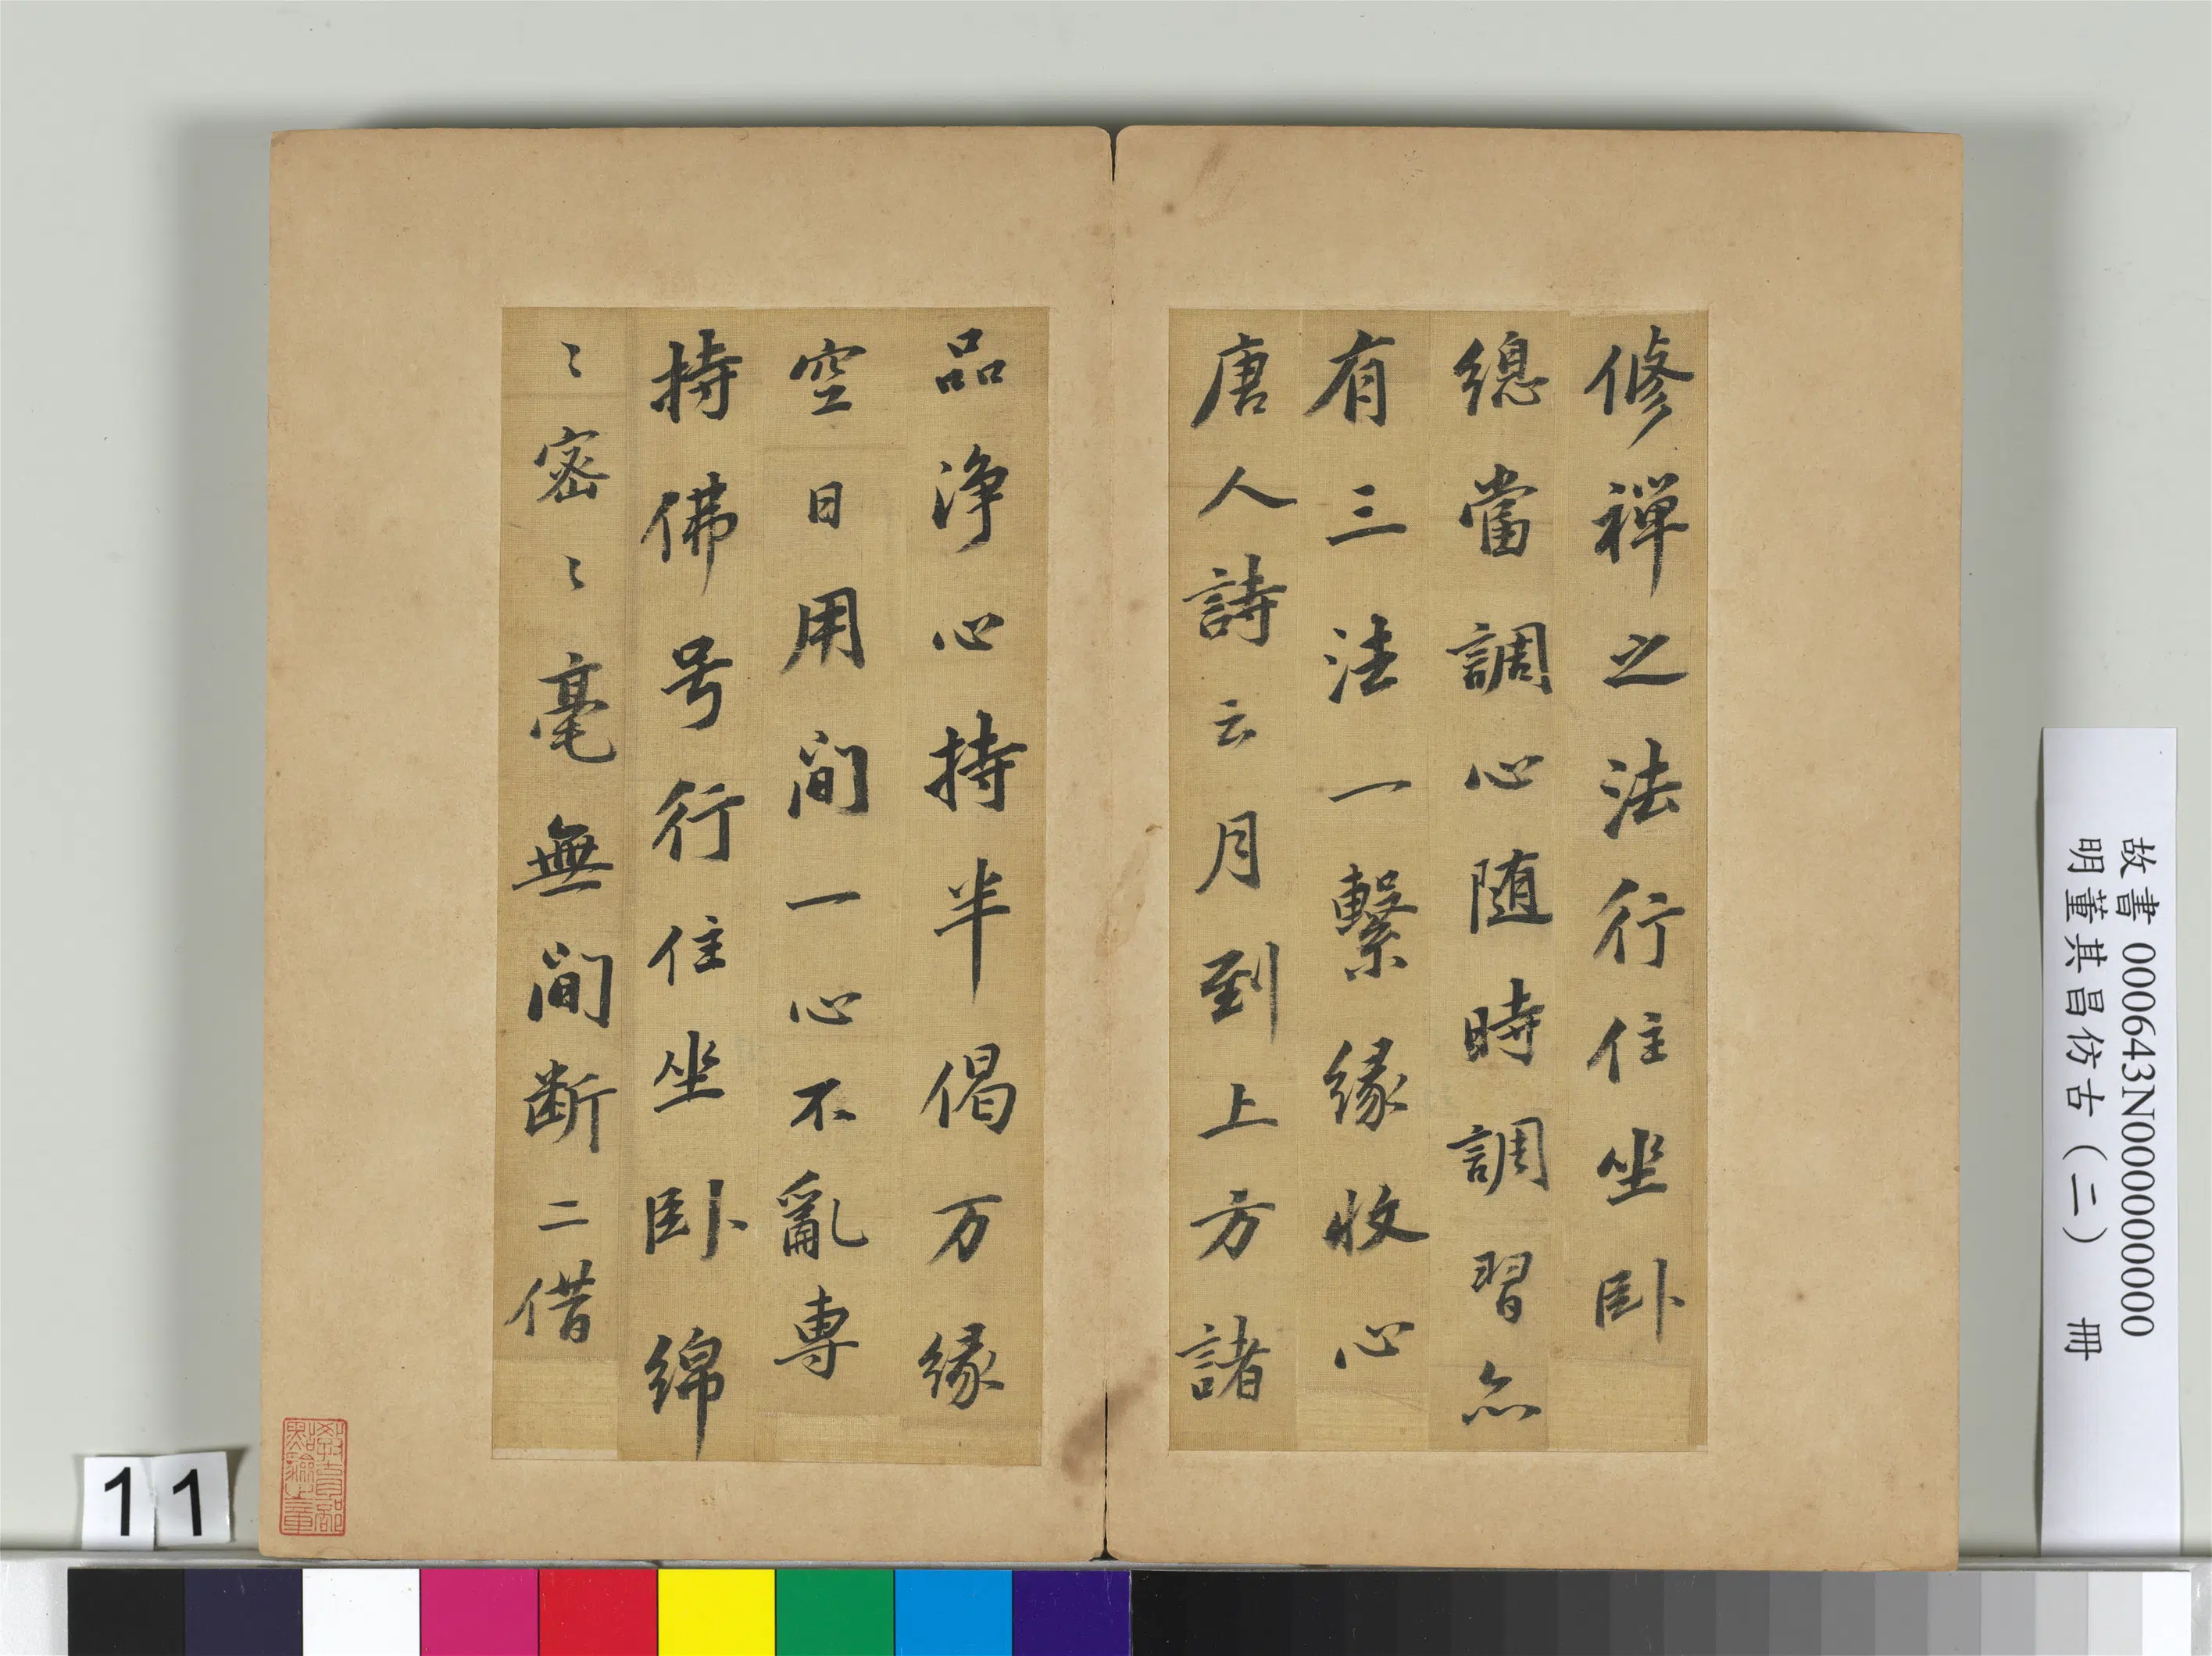 修禅之法行住坐卧
總當調心随時調習亦
有三法一繫緣收心
唐人詩云月到上方諸
品淨心持半偈万緣
空日用间一心不亂專
持佛号行住坐卧綿
〻密〻毫無间断二借
教育部點驗之章
故書 000643N000000000
明董其昌仿古(二) 冊
11